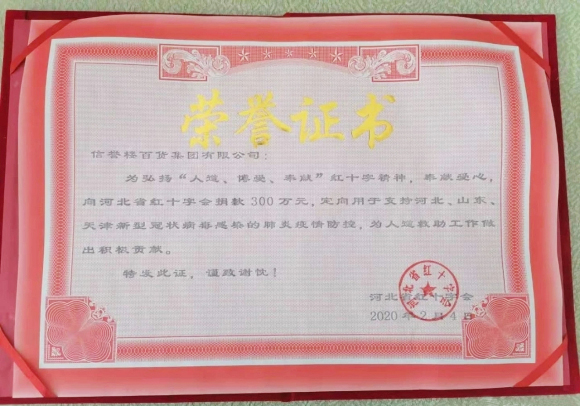 荣誉证书
信誉楼百货集团有限公司：
为弘扬“人道、博爱、奉献”红十字精神，奉献爱心，
向河北省红十字会捐款300万元，定向用于支持河北、山东、
天津新型冠状病毒感染的肺炎疫情防控，为人道救助工作做
出积极贡献。
特发此证，谨致谢忱！
河北省红十字会
河北省红十字会
2020年2月4日